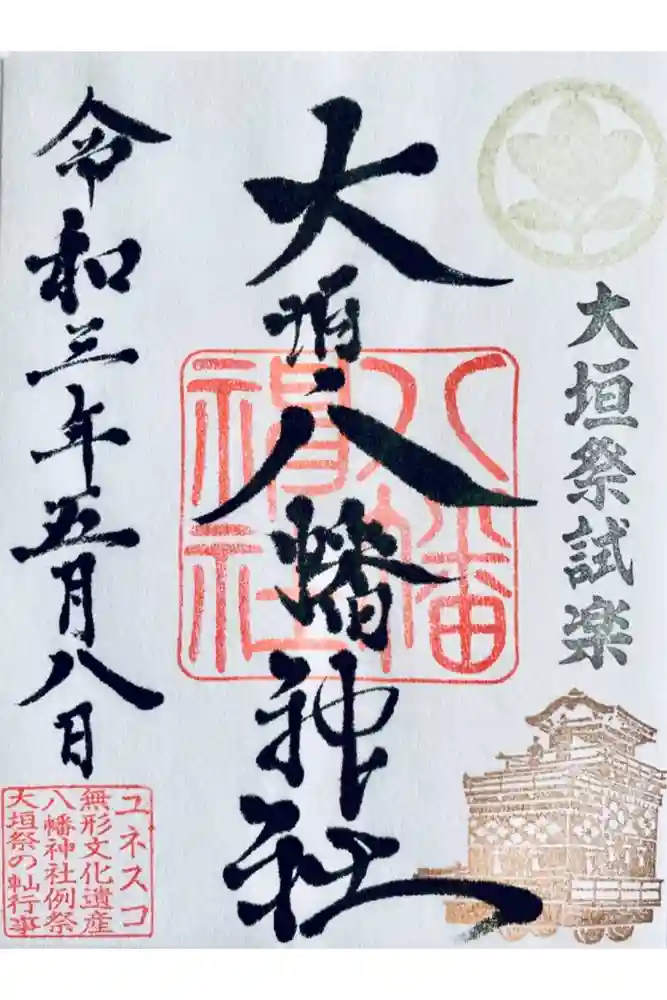 大垣祭試楽
大垣八幡神社
八幡
神社
令和三年五月八日
ユネスコ
無形文化遺産
八幡神社例祭
大垣祭の軕行事